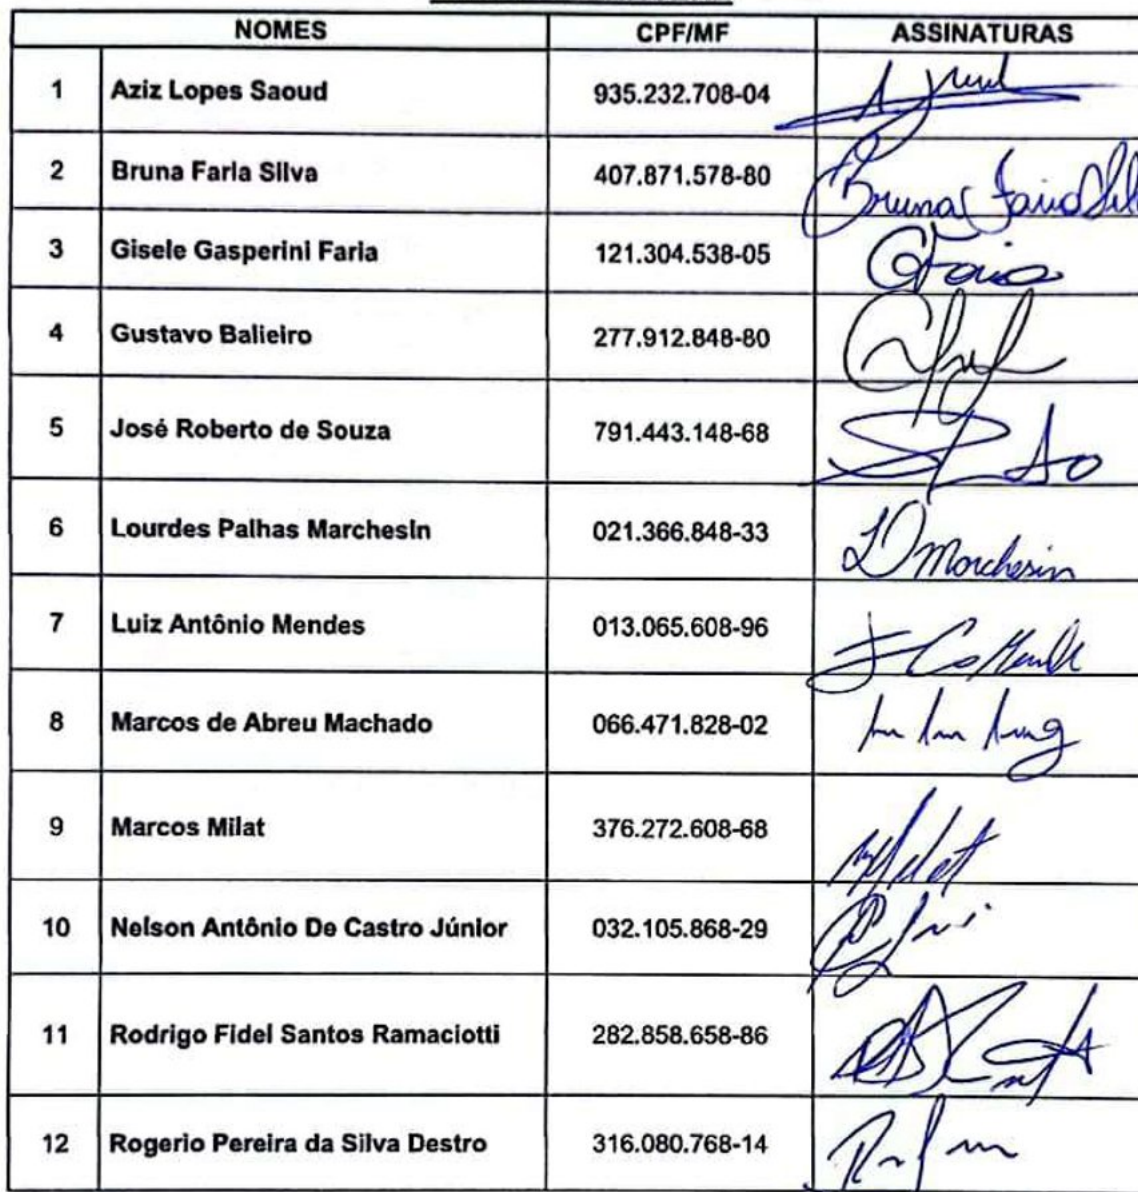 NOMES CPF/MF ASSINATURAS
1 Aziz Lopes Saoud 935.232.708-04
2 Bruna Faria Silva 407.871.578-80 Bruna Faria Sil
3 Gisele Gasperini Faria 121.304.538-05 GFaria
4 Gustavo Balieiro 277.912.848-80
5 José Roberto de Souza 791.443.148-68
6 Lourdes Palhas Marchesin 021.366.848-33 Marchesin
7 Luiz Antônio Mendes 013.065.608-96
8 Marcos de Abreu Machado 066.471.828-02
9 Marcos Milat 376.272.608-68 Milat
10 Nelson Antônio De Castro Júnior 032.105.868-29
11 Rodrigo Fidel Santos Ramaciotti 282.858.658-86
12 Rogerio Pereira da Silva Destro 316.080.768-14